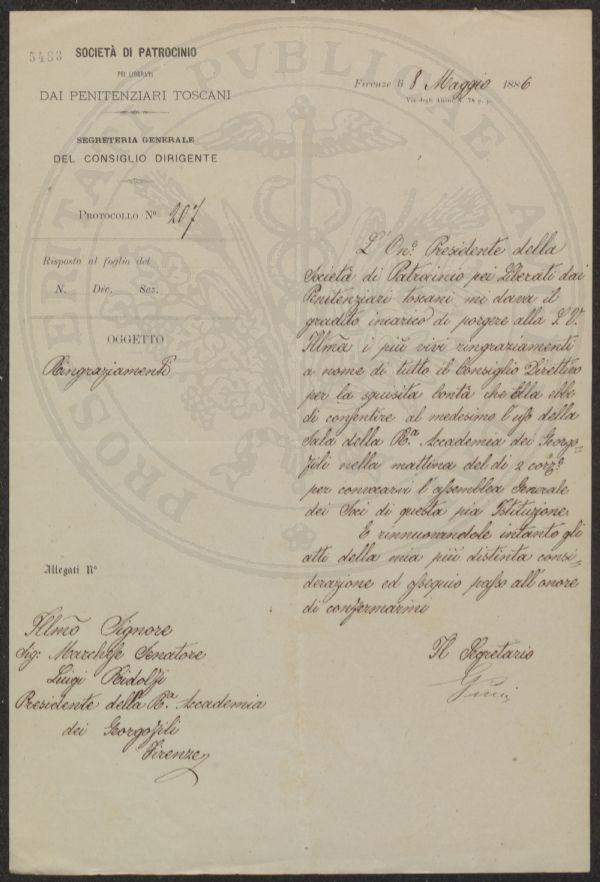 5483
SOCIETÀ DI PATROCINIO
PEI LIBERATI
DAI PENITENZIARI TOSCANI
SEGRETERIA GENERALE
DEL CONSIGLIO DIRIGENTE
PROTOCOLLO Nº 207
Risposta al foglio del
N. Div. Sez.
OGGETTO
Ringraziamenti
Firenze li 8 Maggio 1886
Via degli Alfani N. 78 p. p.
L'On. Presidente della
Società di Patrocinio pei Liberati dai
Penitenziari toscani mi dava il
gradito incarico di porgere alla S. V.
Illma i più vivi ringraziamenti
a nome di tutto il Consiglio Direttivo
per la squisita bontà che Ella ebbe
di consentire al medesimo l'uso della
Sala della Rª Accademia dei Georgo-
fili nella mattina del di 2 corr.
per convocarvi l'assemblea Generale
dei Soci di questa pia Istituzione.
E rinnuovandole intanto gli
atti della mia più distinta consi-
derazione ed ossequio passo all'onore
di confermarmi
Il Segretario
Allegati Nº
Illmo Signore
Sig: Marchese Senatore
Luigi Ridolfi
Presidente della Rª Accademia
dei Georgofili
Firenze
PROSPERITATI PVBLICAE A